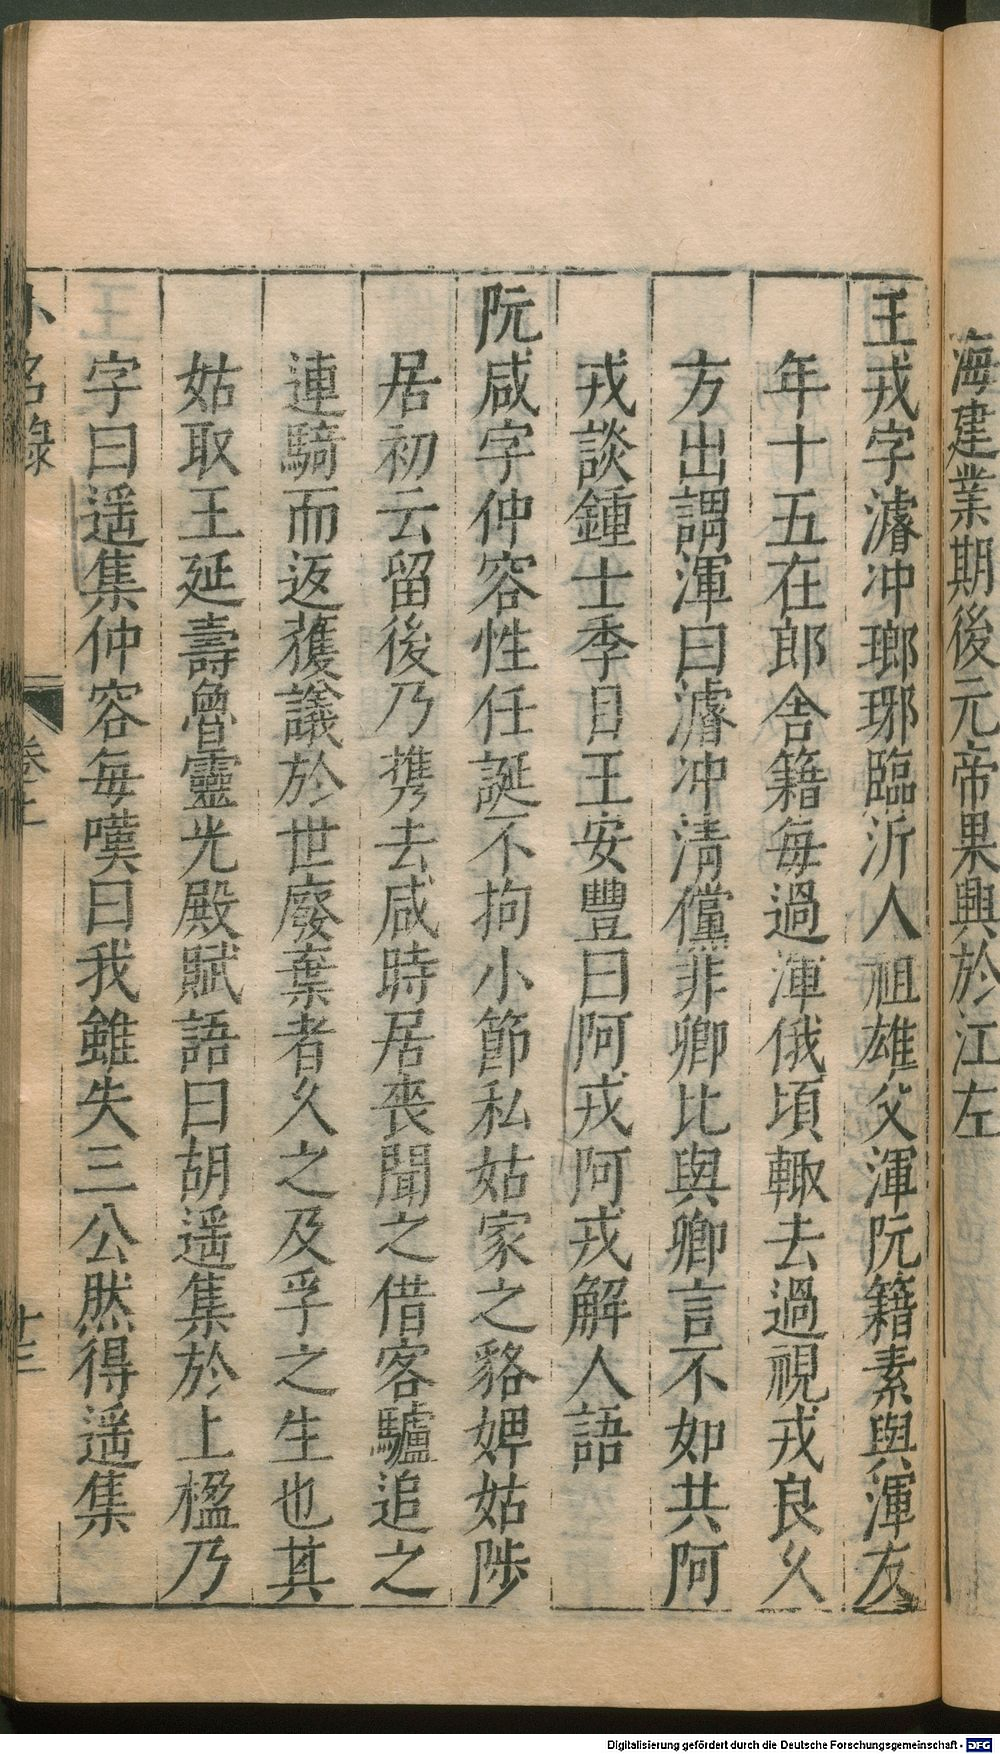 海建業期後元帝果興於江左
王戎字濬冲瑯琊臨沂人祖雄父渾阮籍素與渾友
年十五在郎舍籍每過渾俄頃輙去過視戎良久
方出謂渾曰濬冲清儻非卿比與卿言不如共阿
戎談鍾士季目王安豐曰阿戎阿戎解人語
阮咸字仲容性任誕不拘小節私姑家之貉婢姑陟
居初云留後乃携去咸時居喪聞之借客驢追之
連騎而返蒦議於世廢棄者久之及孚之生也其
姑取王延壽魯靈光殿賦語曰胡遥集於上楹乃
字曰遥集仲容每嘆曰我雖失三公然得遥集
小名錄
卷上
十三
Digitalisierung gefördert durch die Deutsche Forschungsgemeinschaft - DFG